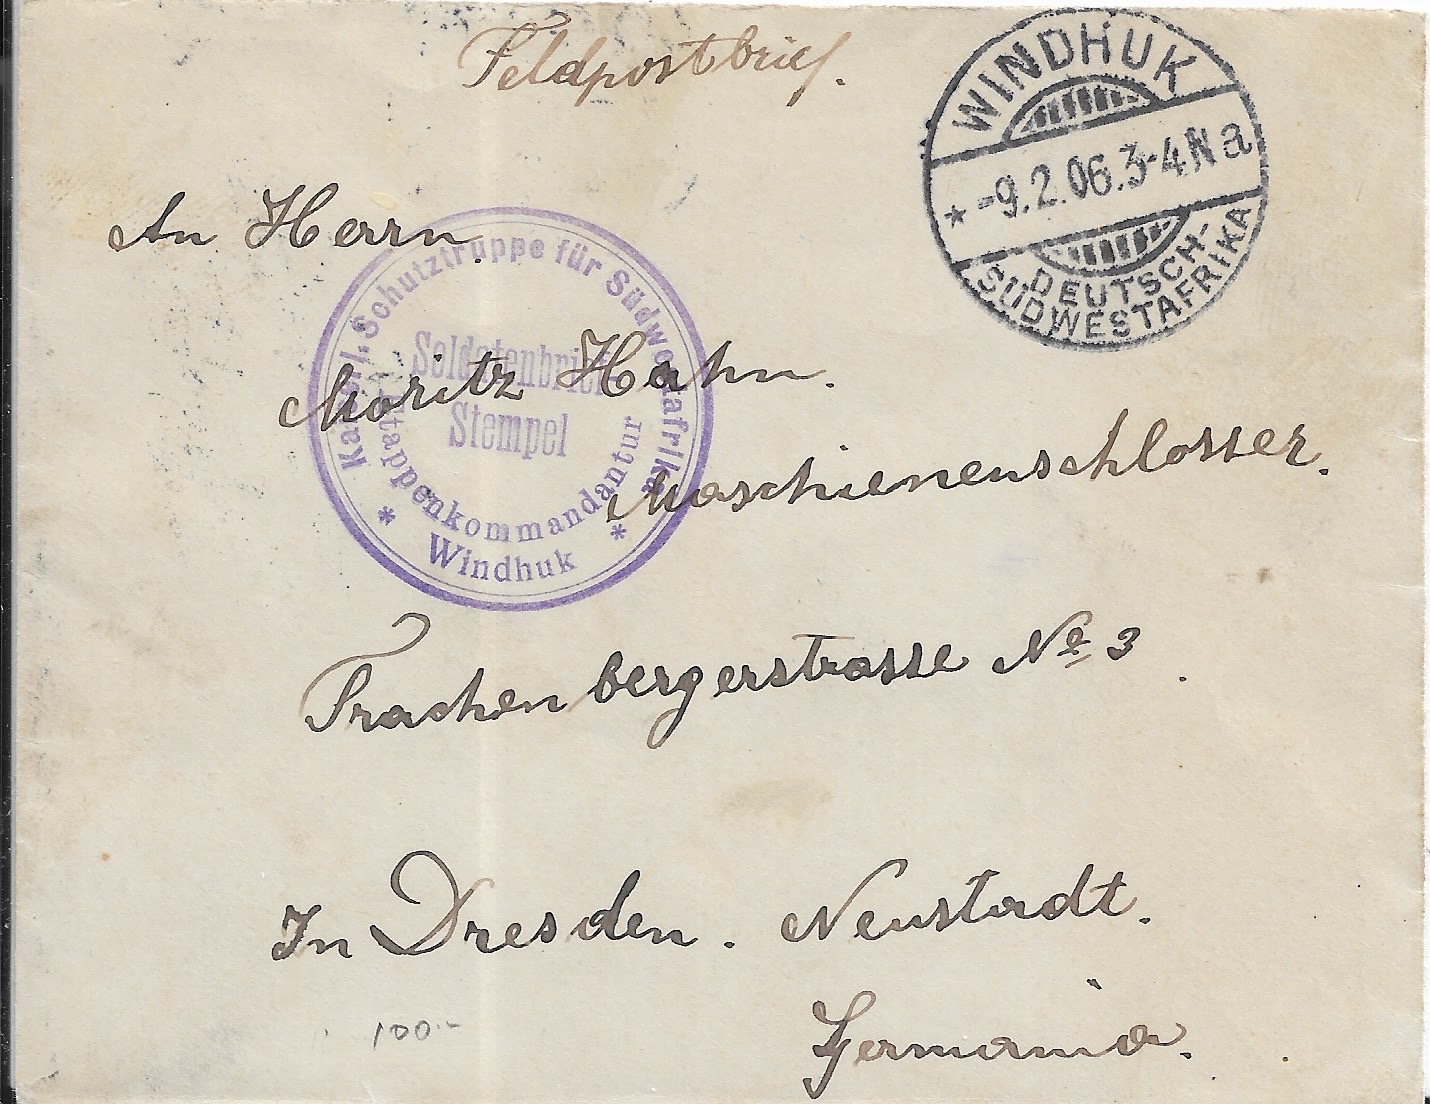 Feldpostbrief.
WINDHUK
* -9.2.06.3-4N a
DEUTSCH-
SÜDWESTAFRIKA
An Herrn
Kaiserl. Schutztruppe für Südwestafrika
Soldatenbrief
Stempel
Etappenkommandantur
* Windhuk *
Moritz Hahn.
Maschienenschlosser.
Trachenbergerstrasse No 3
In Dresden. Neustadt.
Germania.
100.-